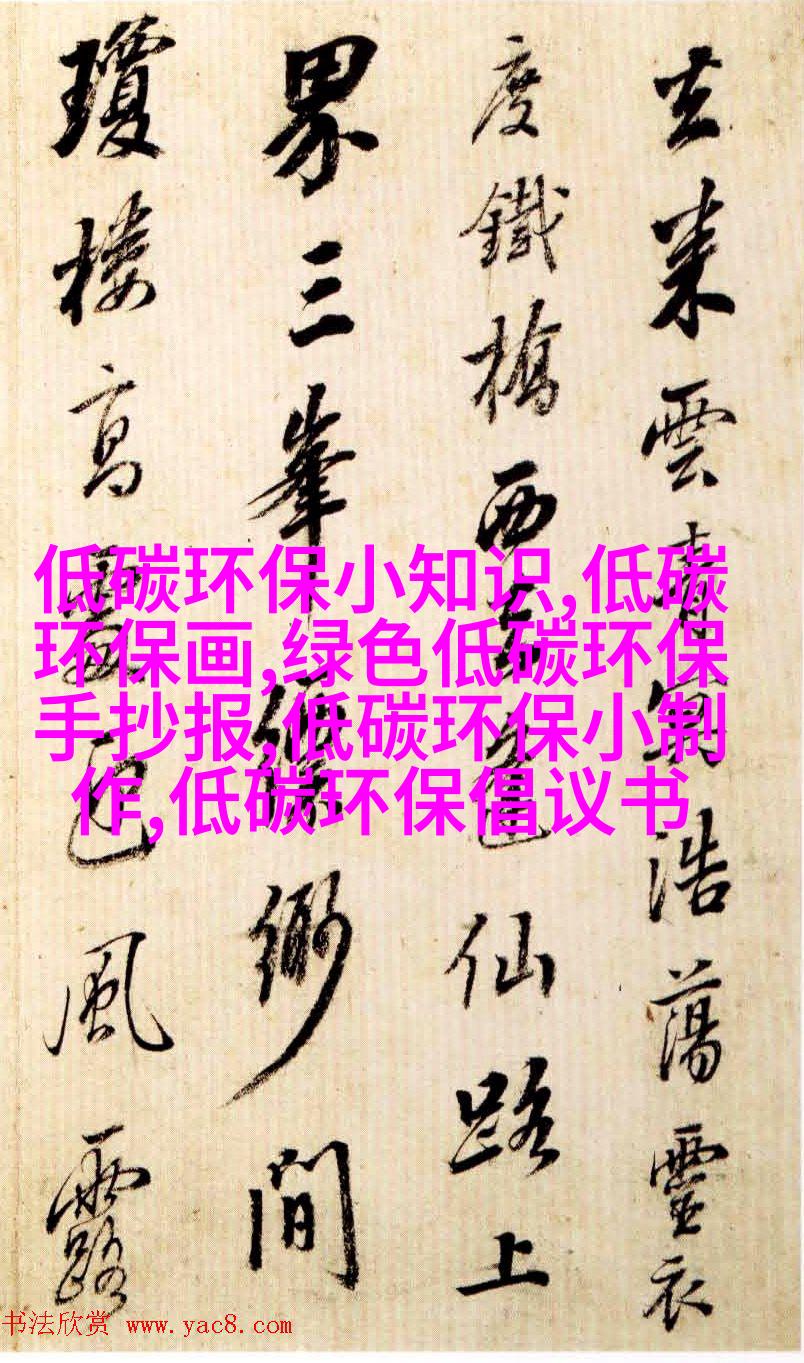 雲浩蕩靈衣
度鐵橋西仙路上
界三峯縹緲間
瓊樓高風露
低碳环保小知识,低碳
环保画,绿色低碳环保
手抄报,低碳环保小制
作,低碳环保倡议书
书法欣赏 www.yac8.com